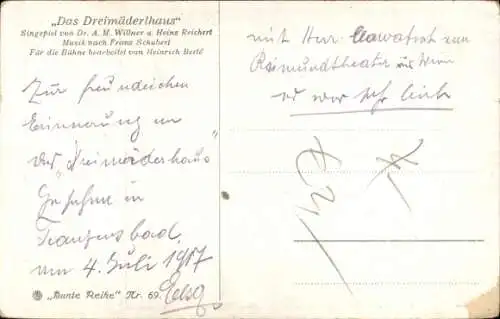 „Das Dreimäderlhaus"
Singspiel von Dr. A. M. Willner u. Heinz Reichert
Musik nach Franz Schubert
Für die Bühne bearbeitet von Heinrich Berté
Zur freundlichen
Erinnerung an
das „Dreimäderlhaus"
Gesehen in
Franzensbad
am 4. Juli 1917
Elsa
„Bunte Reihe" Nr. 69.
mit Herr vom
Raimundtheater aus Wien
er war sehr lieb